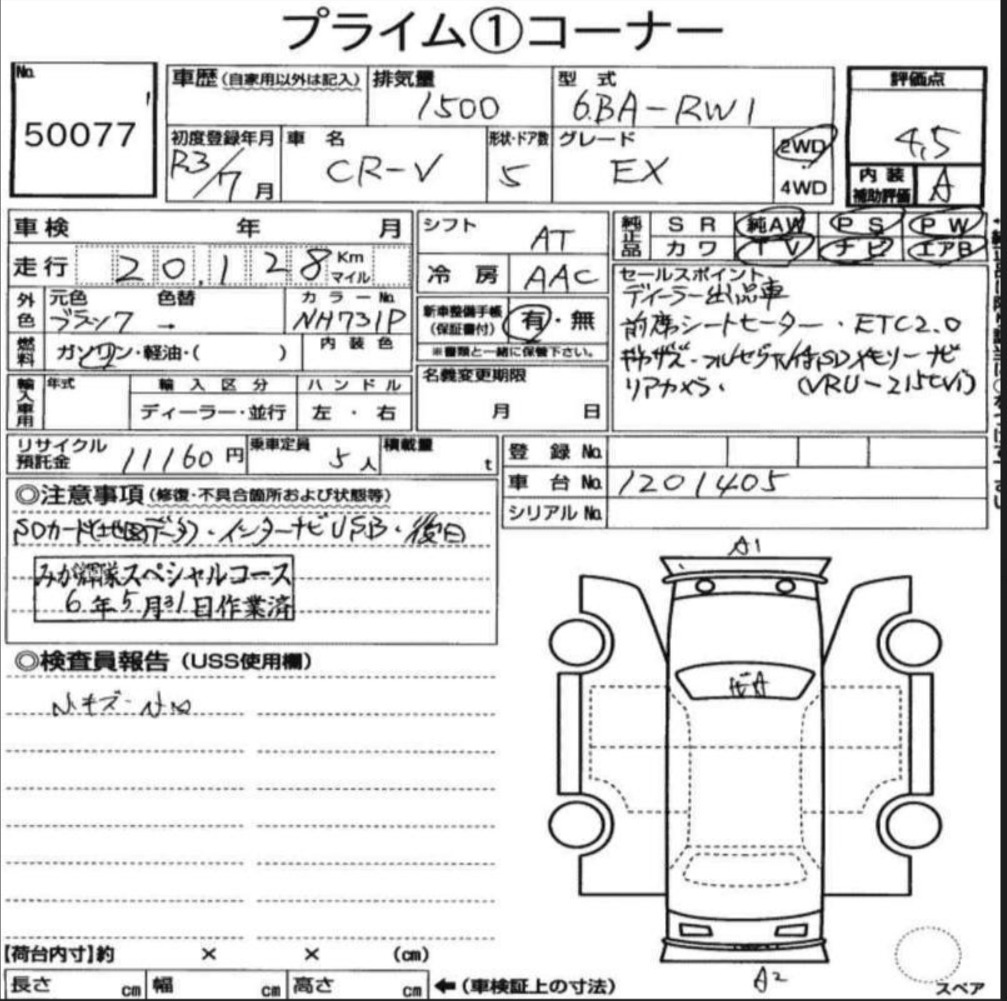 プライム①コーナー
No.
50077
車歴(自家用以外は記入)
排気量
1500
型式
6BA-RW1
評価点
4.5
初度登録年月
R3/7月
車名
CR-V
形状・ドア数
5
グレード
EX
2WD
4WD
内装
補助評価
A
車検 年 月
シフト
AT
純正品
SR 純AW PS PW
カワ TV ナビ エアB
走行 20,128 Km マイル
冷房 AAC
セールスポイント
ディーラー出品車
前席シートヒーター・ETC2.0
ギャザズ・フルセグTV付SDメモリーナビ
リアカメラ・ (VRU-215CVi)
外色
元色 色替
ブラック →
カラーNo.
NH731P
新車整備手帳
(保証書付)
有・無
※書類と一緒に保管下さい。
燃料
ガソリン・軽油・( )
内装色
名義変更期限
月 日
輸入車用
年式
輸入区分
ディーラー・並行
ハンドル
左・右
リサイクル
預託金
11160円
乗車定員
5人
積載量
t
登録No.
車台No.
1201405
シリアルNo.
◎注意事項(修復・不具合箇所および状態等)
SDカード(地図データ)・インターナビUSB・後日
みが輝隊スペシャルコース
6年5月31日作業済
◎検査員報告(USS使用欄)
小キズ・小凹
A1
A2
【荷台内寸】約 × × (cm)
長さ cm 幅 cm 高さ cm ←(車検証上の寸法)
スペア